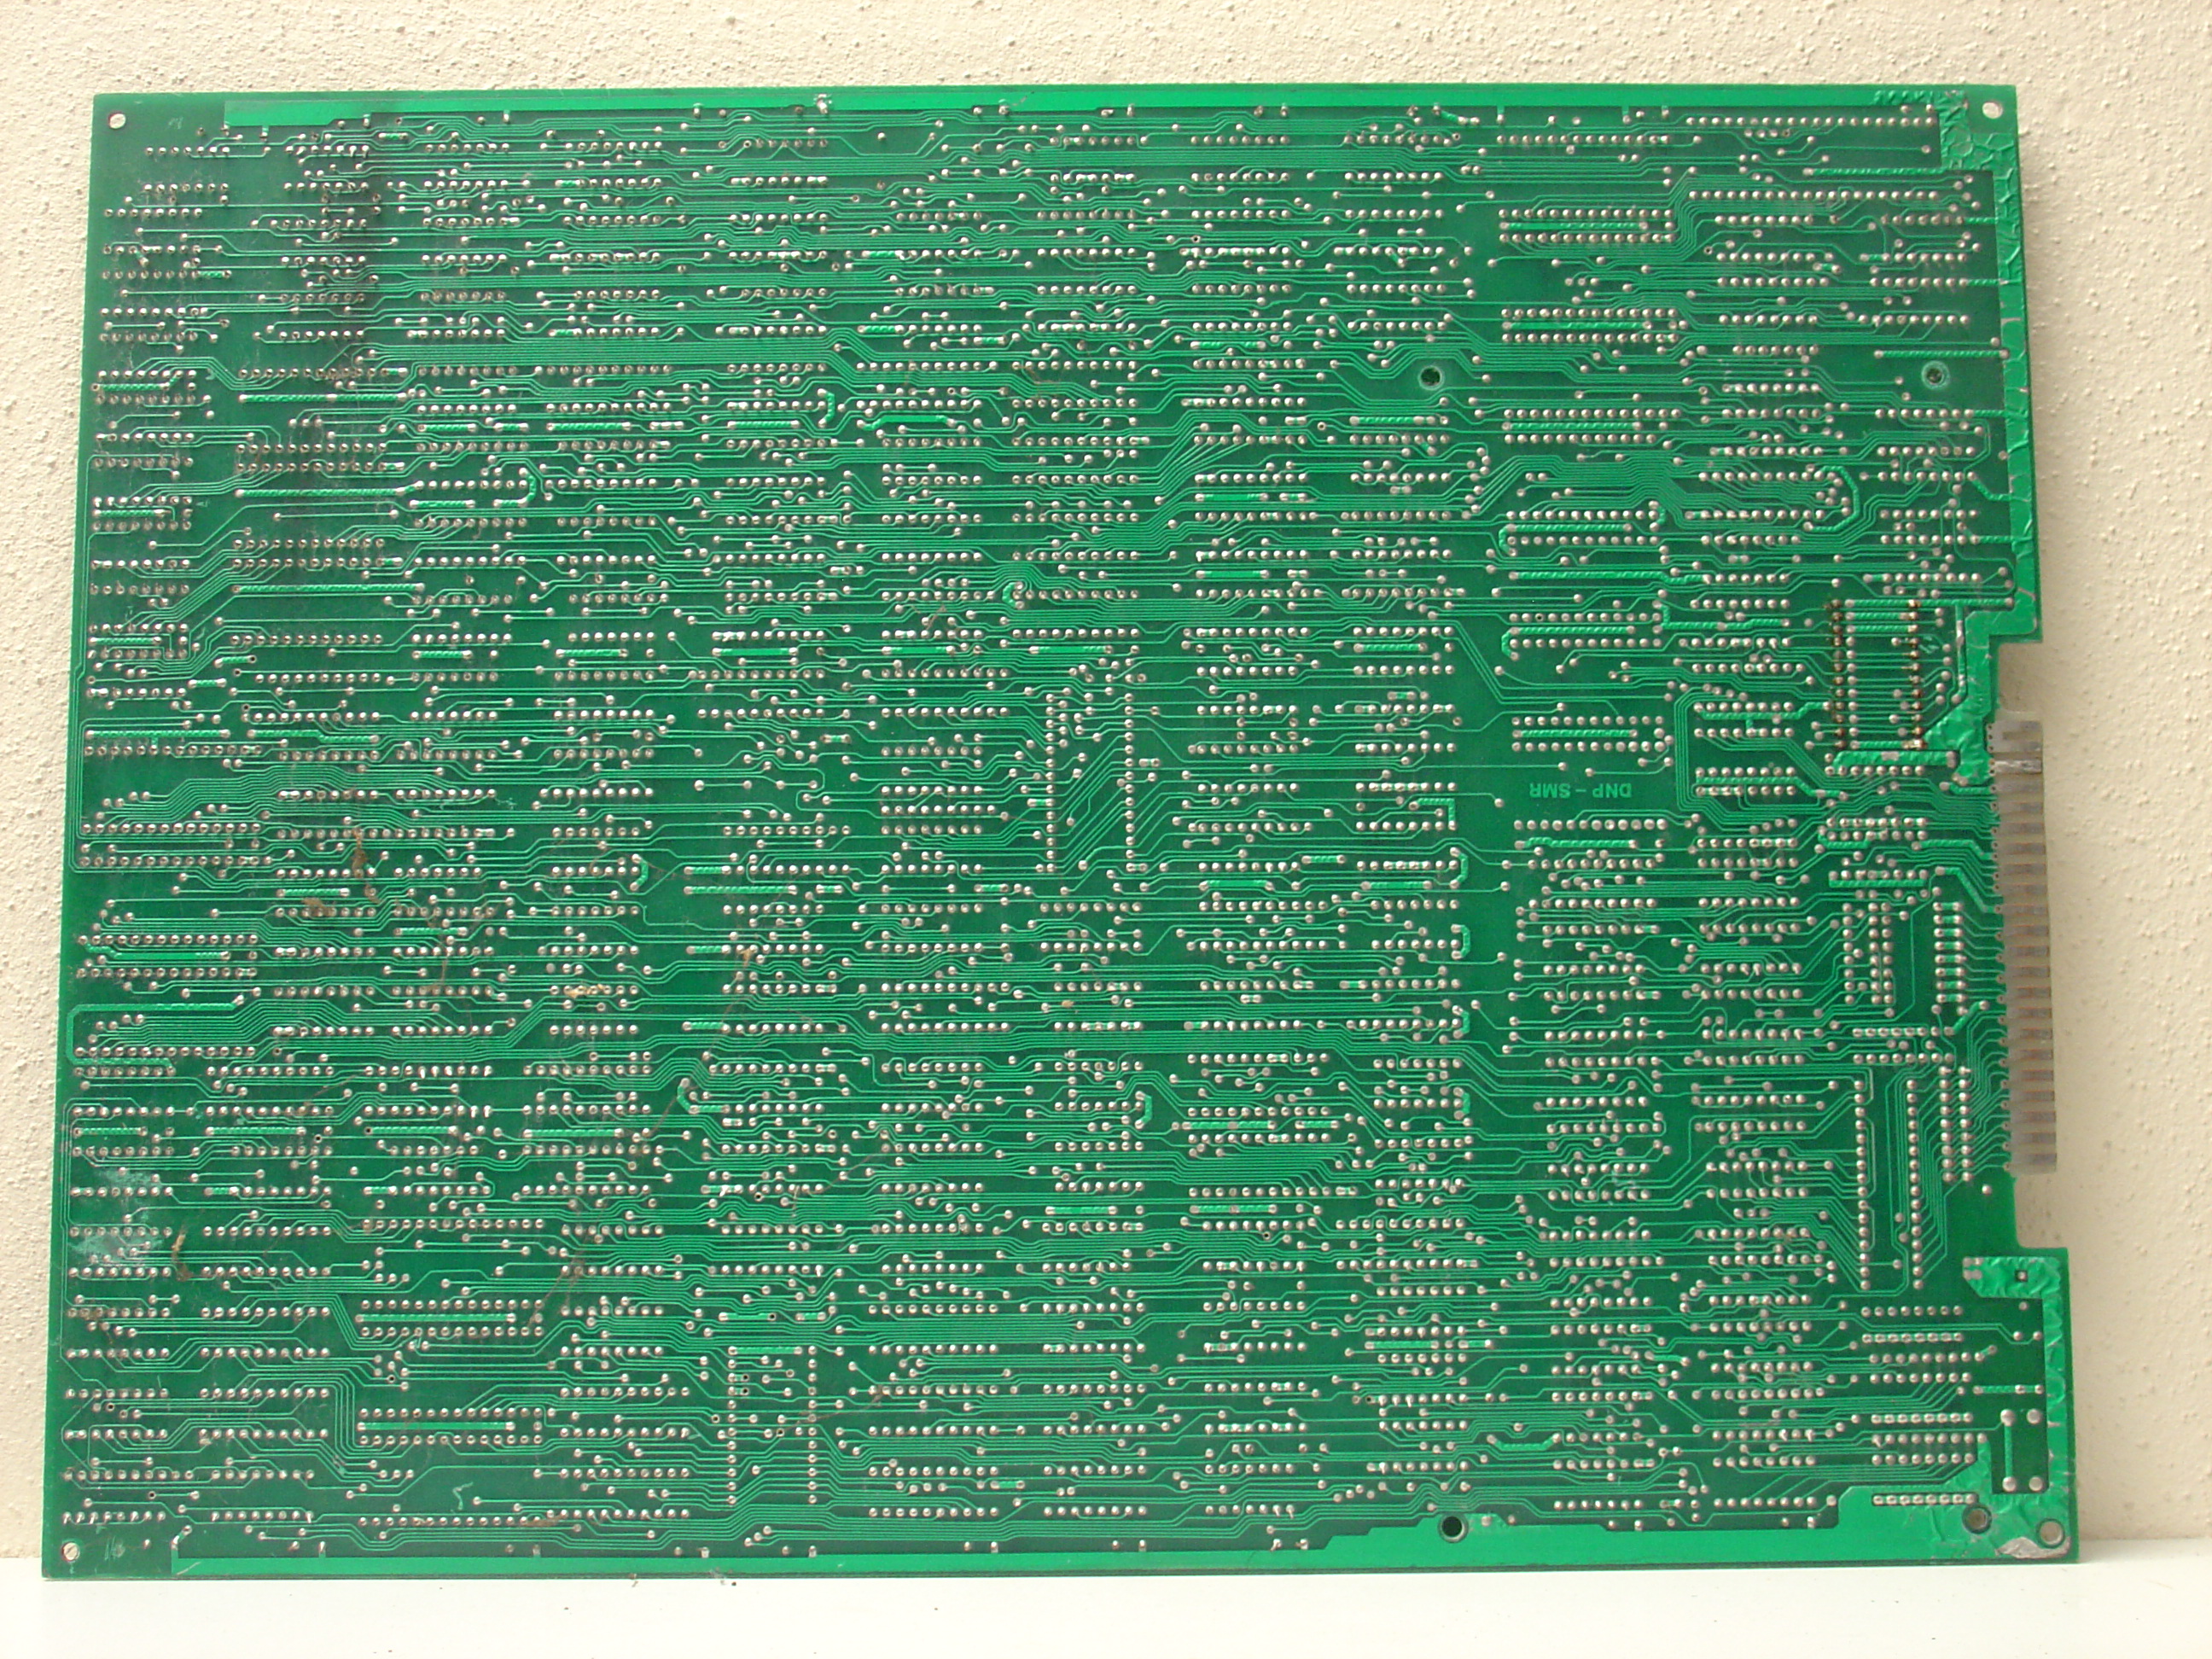 DNP - SMR